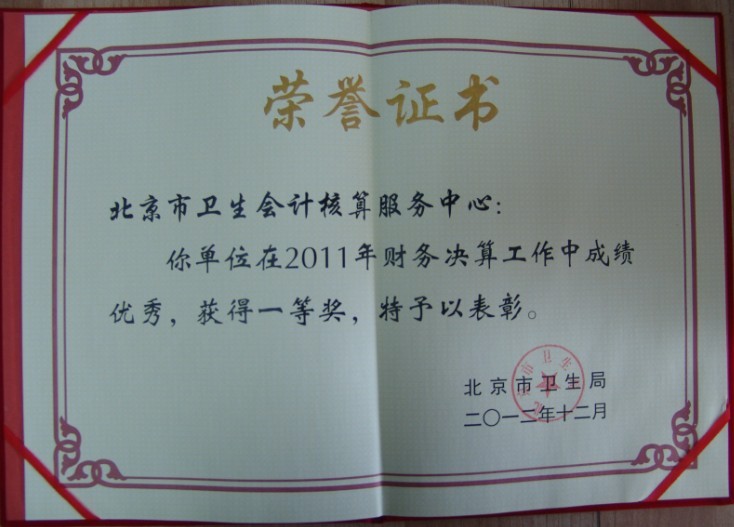 荣誉证书
北京市卫生会计核算服务中心:
你单位在2011年财务决算工作中成绩
优秀，获得一等奖，特予以表彰。
北京市卫生局
二〇一二年十二月